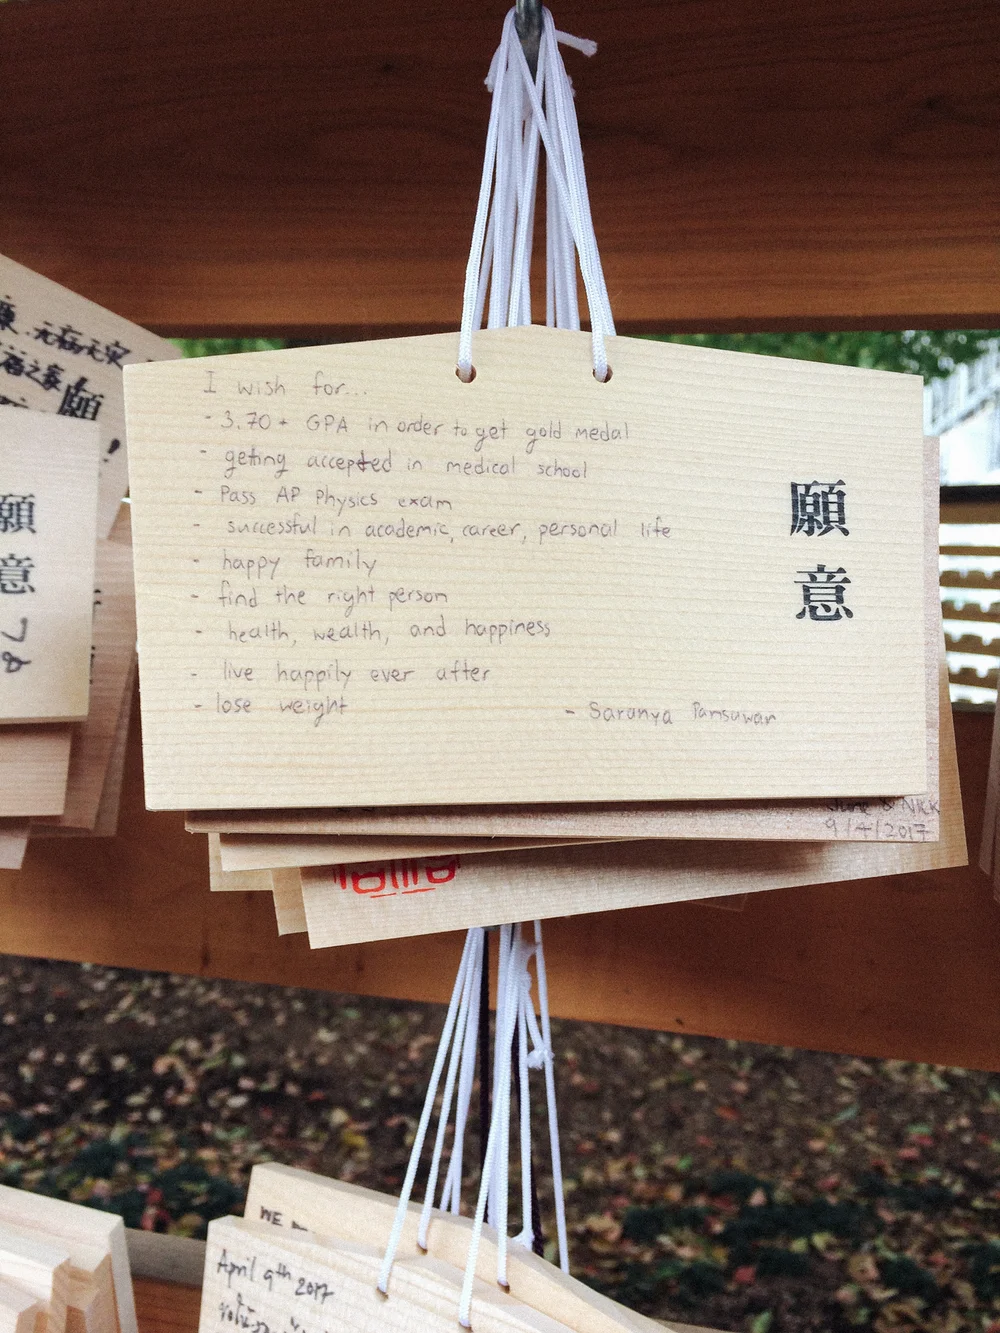 I wish for...
- 3.70+ GPA in order to get gold medal
- getting accepted in medical school
- Pass AP Physics exam
- successful in academic, career, personal life
- happy family
- find the right person
- health, wealth, and happiness
- live happily ever after
- lose weight
- Saranya Pansuwan
願意
& Nick
9/4/2017
願
!
願意
WE
April 9th 2017